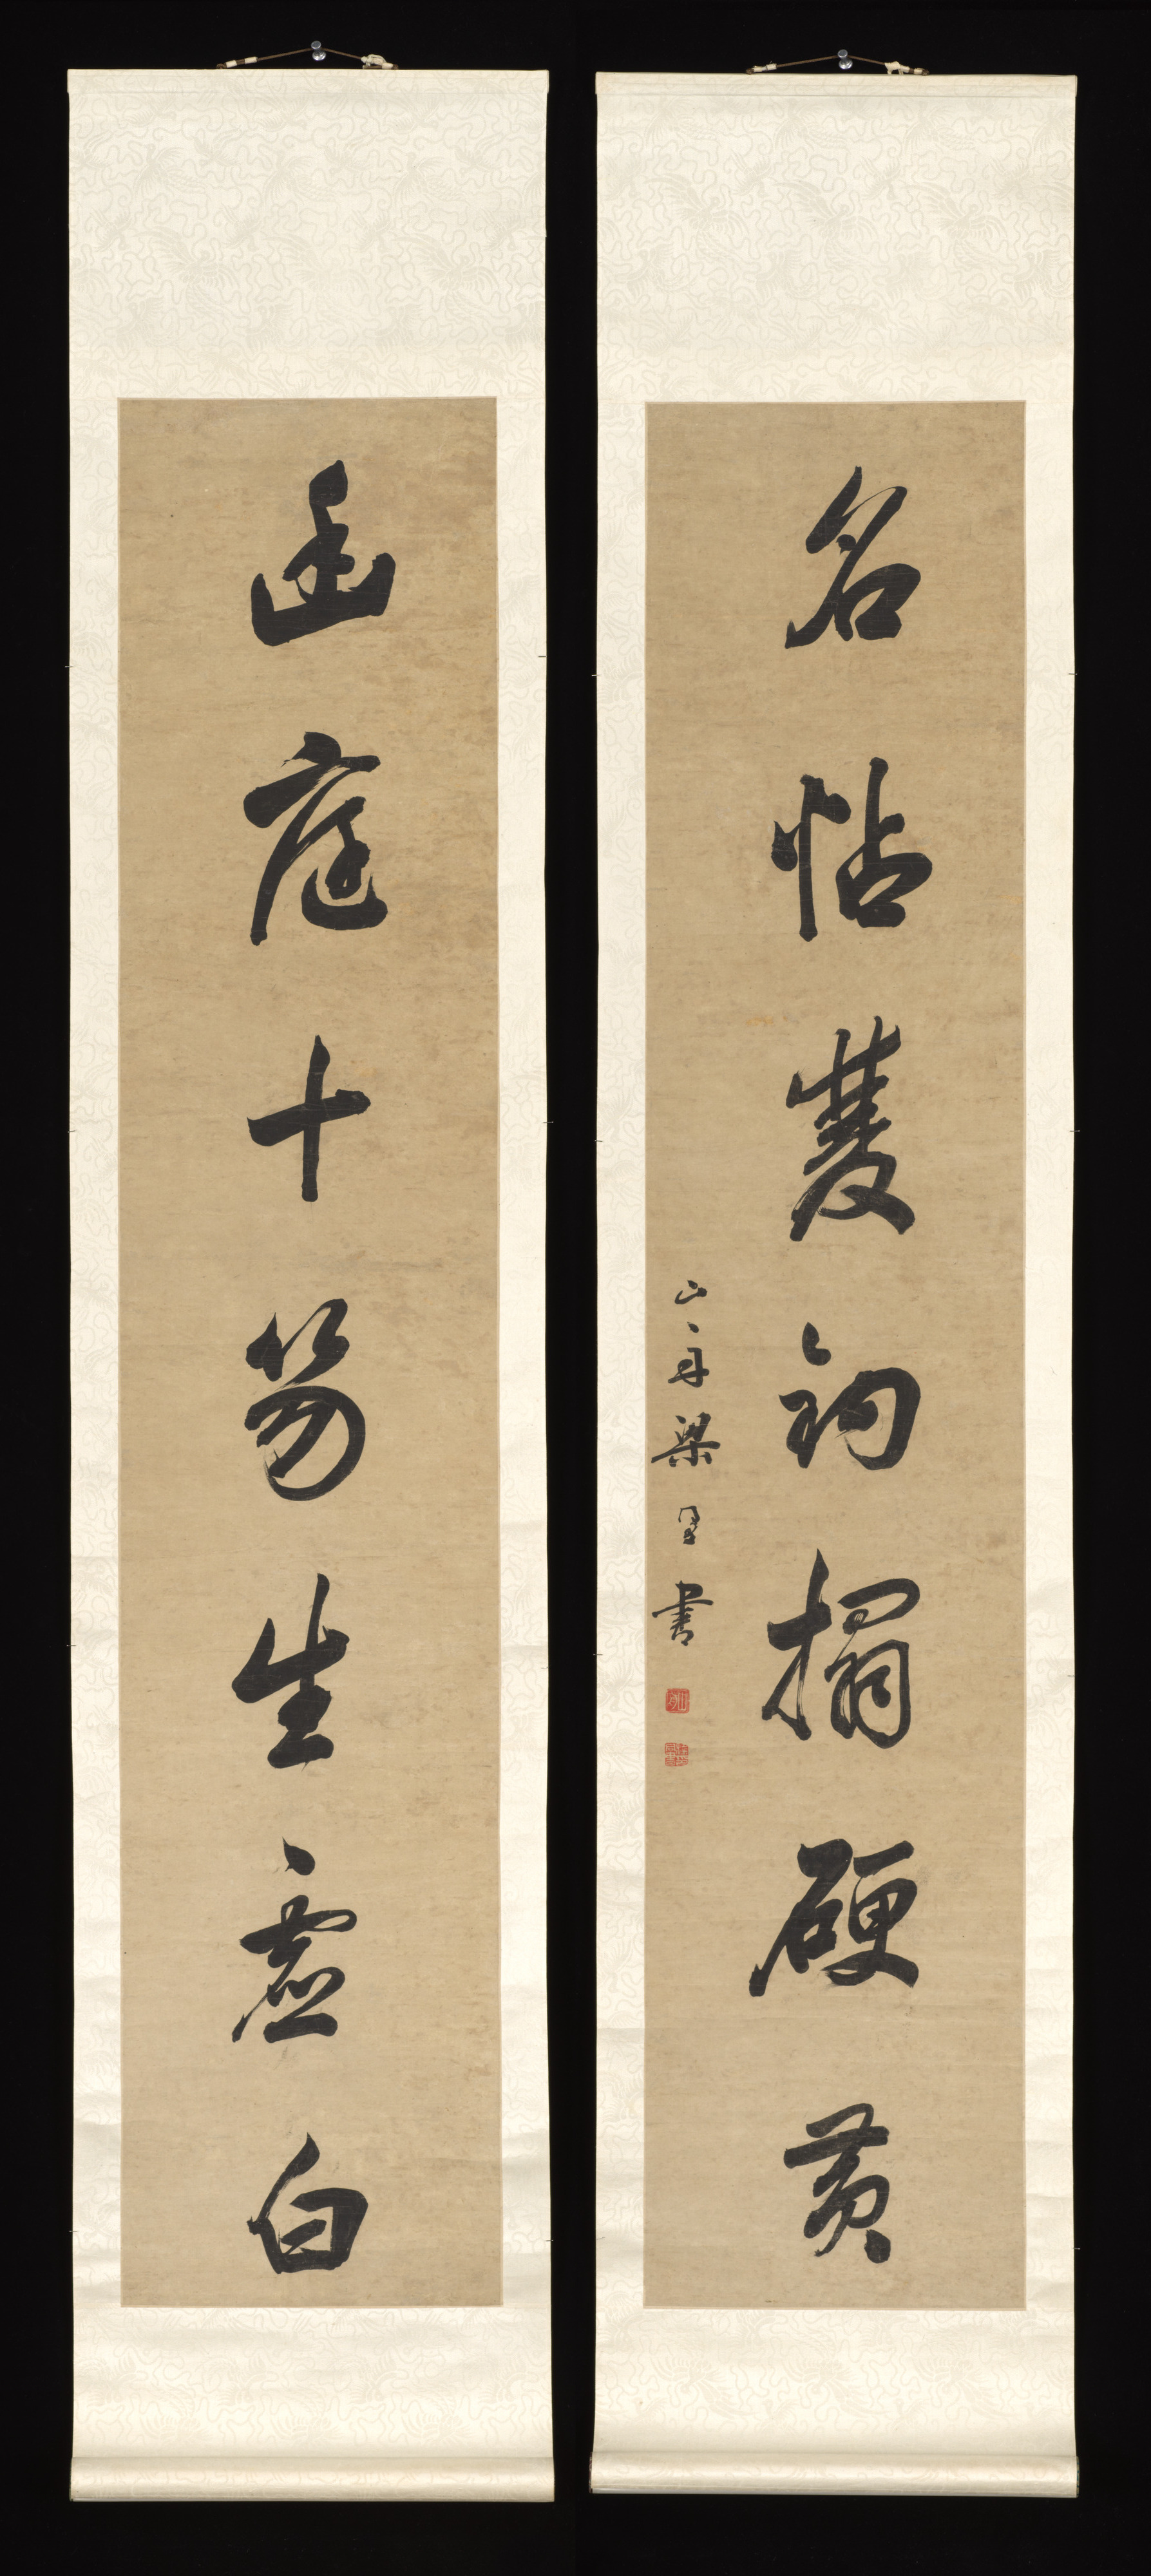 名帖雙鉤搨硬黃
山舟梁同書書
幽庭十笏生虛白